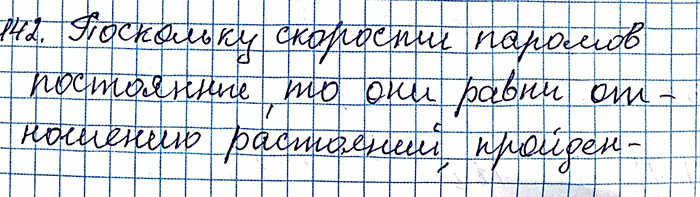 142. Поскольку скорости паромов
постоянние, то они равни от-
ношению растояний, пройден-